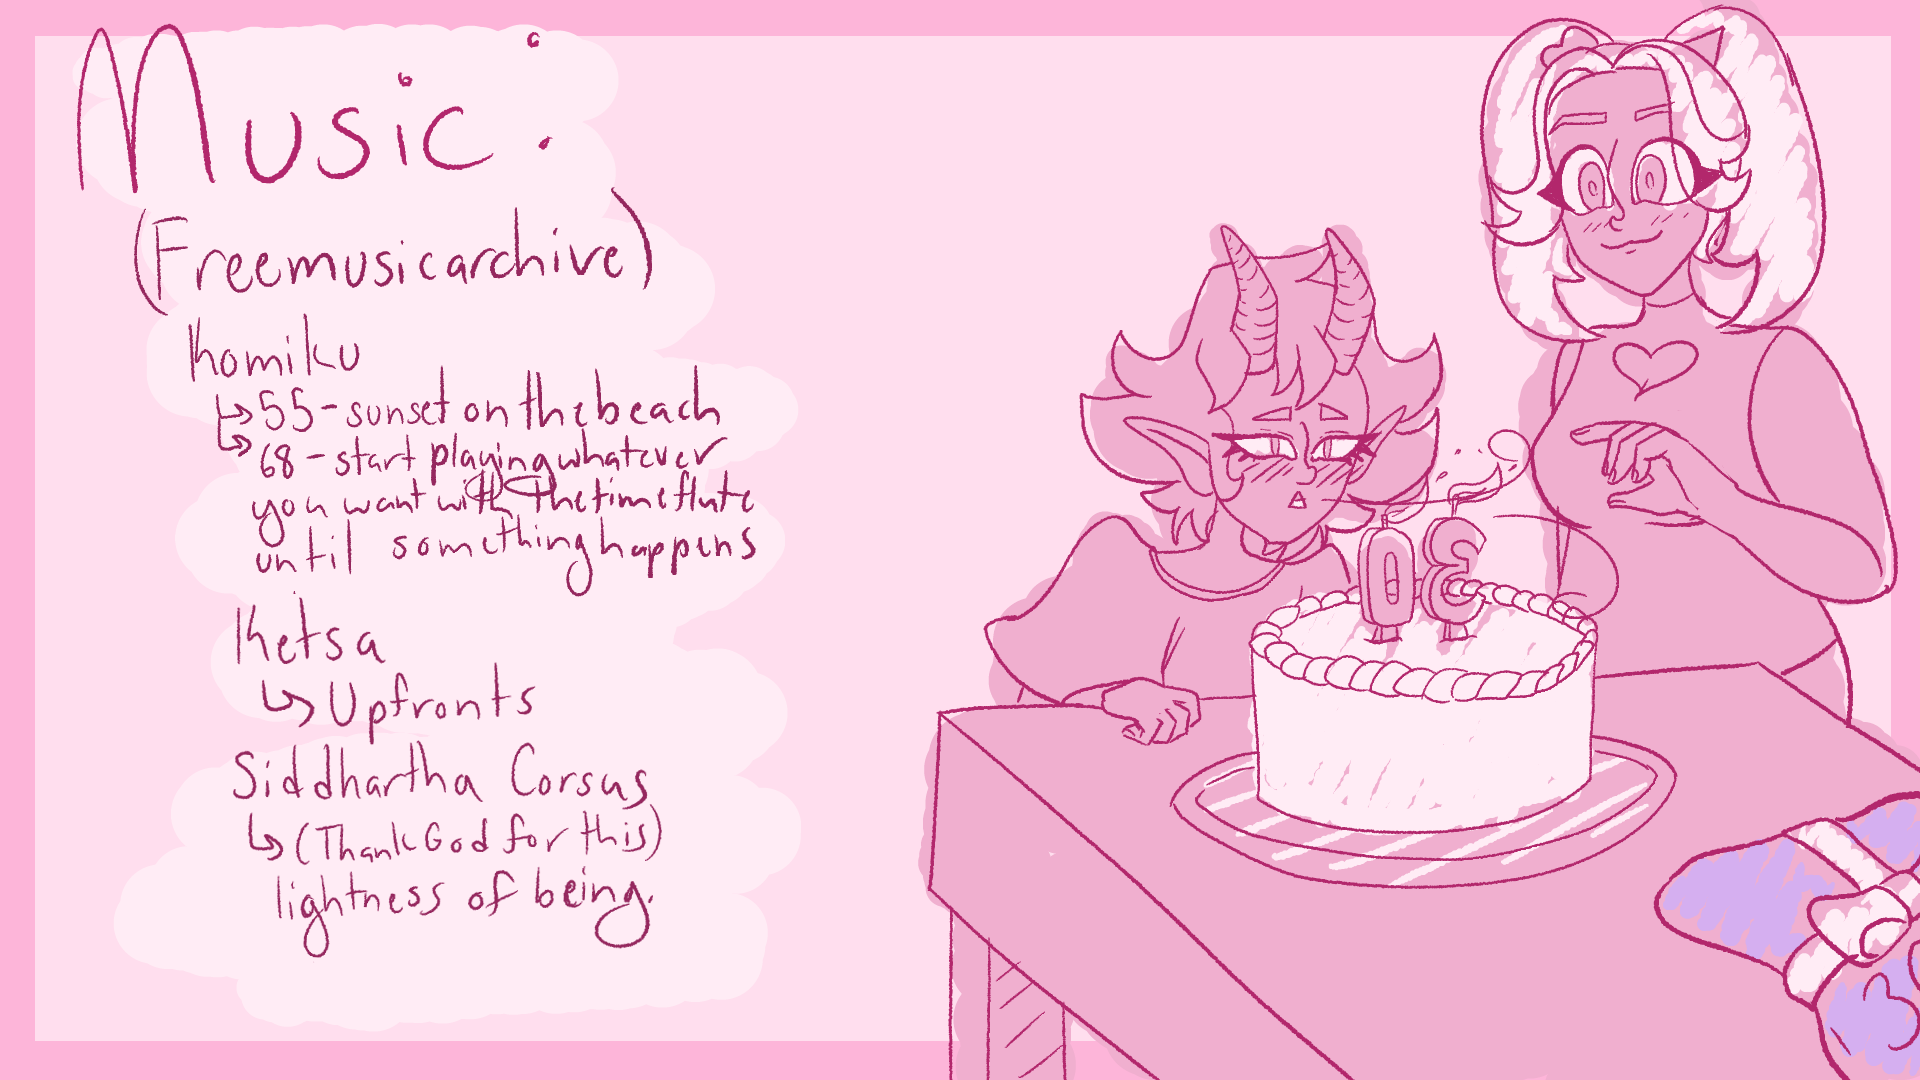 Music:
(Freemusicarchive)
Komiku
↳ 55 - sunset on the beach
↳ 68 - start playing whatever
you want with the time flute
until something happens
Ketsa
↳ Upfronts
Siddhartha Corsus
↳ (Thank God for this)
lightness of being.
30